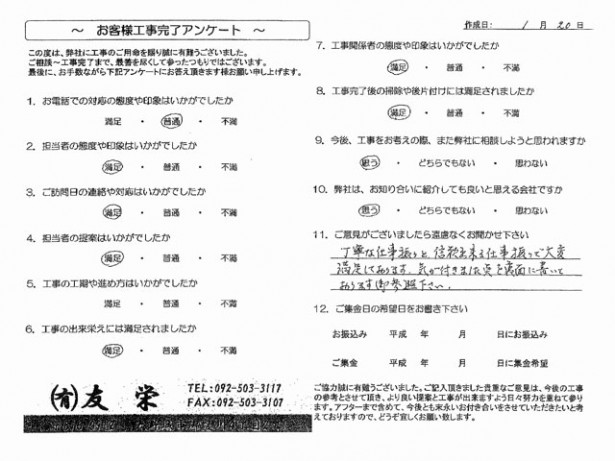 ～ お客様工事完了アンケート ～
この度は、弊社に工事のご用命を賜り誠に有難うございました。
ご相談～工事完了まで、最善を尽くして参ったつもりではございます。
最後に、お手数ながら下記アンケートにお答え頂きます様お願い申し上げます。
1. お電話での対応の態度や印象はいかがでしたか
満足 ・ 普通 ・ 不満
2. 担当者の態度や印象はいかがでしたか
満足 ・ 普通 ・ 不満
3. ご訪問日の連絡や対応はいかがでしたか
満足 ・ 普通 ・ 不満
4. 担当者の提案はいかがでしたか
満足 ・ 普通 ・ 不満
5. 工事の工期や進め方はいかがでしたか
満足 ・ 普通 ・ 不満
6. 工事の出来栄えには満足されましたか
満足 ・ 普通 ・ 不満
(有)友 栄
TEL:092-503-3117
FAX:092-503-3107
作成日: 1 月 20 日
7. 工事関係者の態度や印象はいかがでしたか
満足 ・ 普通 ・ 不満
8. 工事完了後の掃除や後片付けには満足されましたか
満足 ・ 普通 ・ 不満
9. 今後、工事をお考えの際、また弊社に相談しようと思われますか
思う ・ どちらでもない ・ 思わない
10. 弊社は、お知り合いに紹介しても良いと思える会社ですか
思う ・ どちらでもない ・ 思わない
11. ご意見がございましたら遠慮なくお聞かせ下さい
丁寧な仕事振りと、信頼出来る仕事振りで大変
満足しております。気が付きました点を裏面に書いて
あります御参照下さい。
12. ご集金日の希望日をお書き下さい
お振込み 平成 年 月 日にお振込み
ご集金 平成 年 月 日に集金希望
ご協力誠に有難うございました。ご記入頂きました貴重なご意見は、今後の工事
の参考とさせて頂き、より良い提案と工事が出来ますよう日々努力を重ねて参り
ます。アフターまで含めて、今後とも末永いお付き合いをさせていただきたいと考
えておりますので、どうぞ宜しくお願い致します。